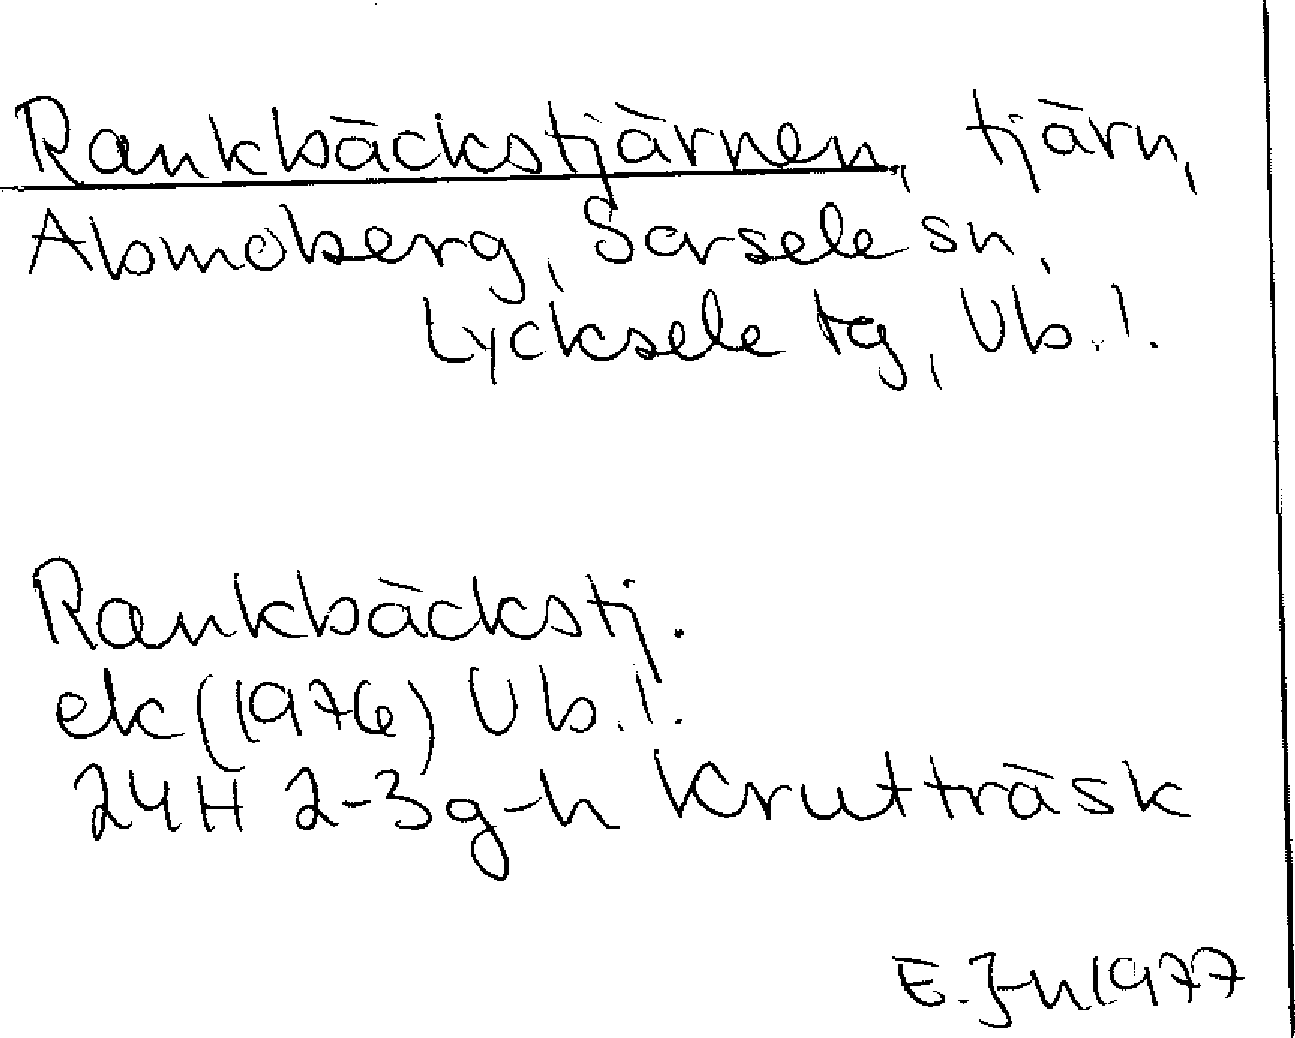 Rankbäckstjärnen, tjärn,
Abmoberg, Sorsele sn,
Lycksele tg, Vb.l.
Rankbäckstj.
ek (1976) Vb.l.
24H 2-3g-h Krutträsk
E. J-n 1977